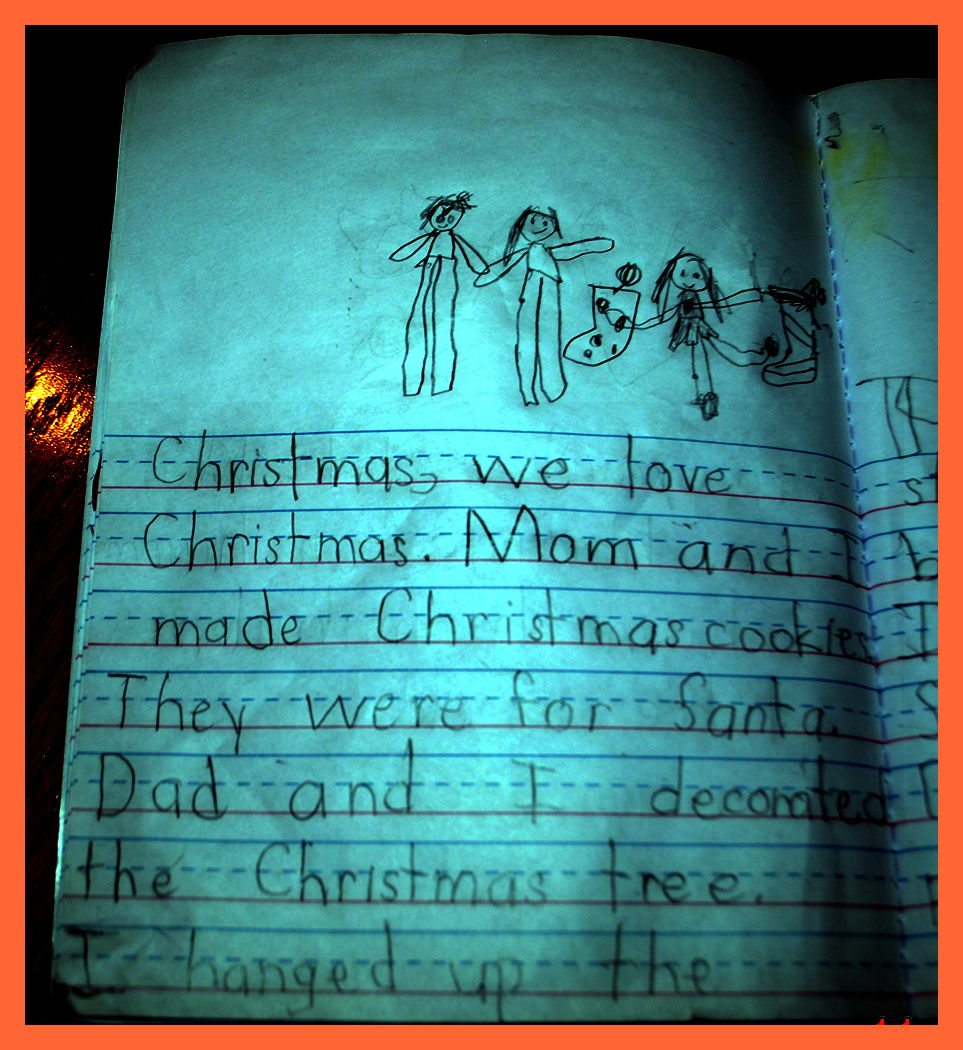 Christmas, we love
Christmas. Mom and I
made Christmas cookies.
They were for Santa.
Dad and I decorated
the Christmas tree.
I hanged up the